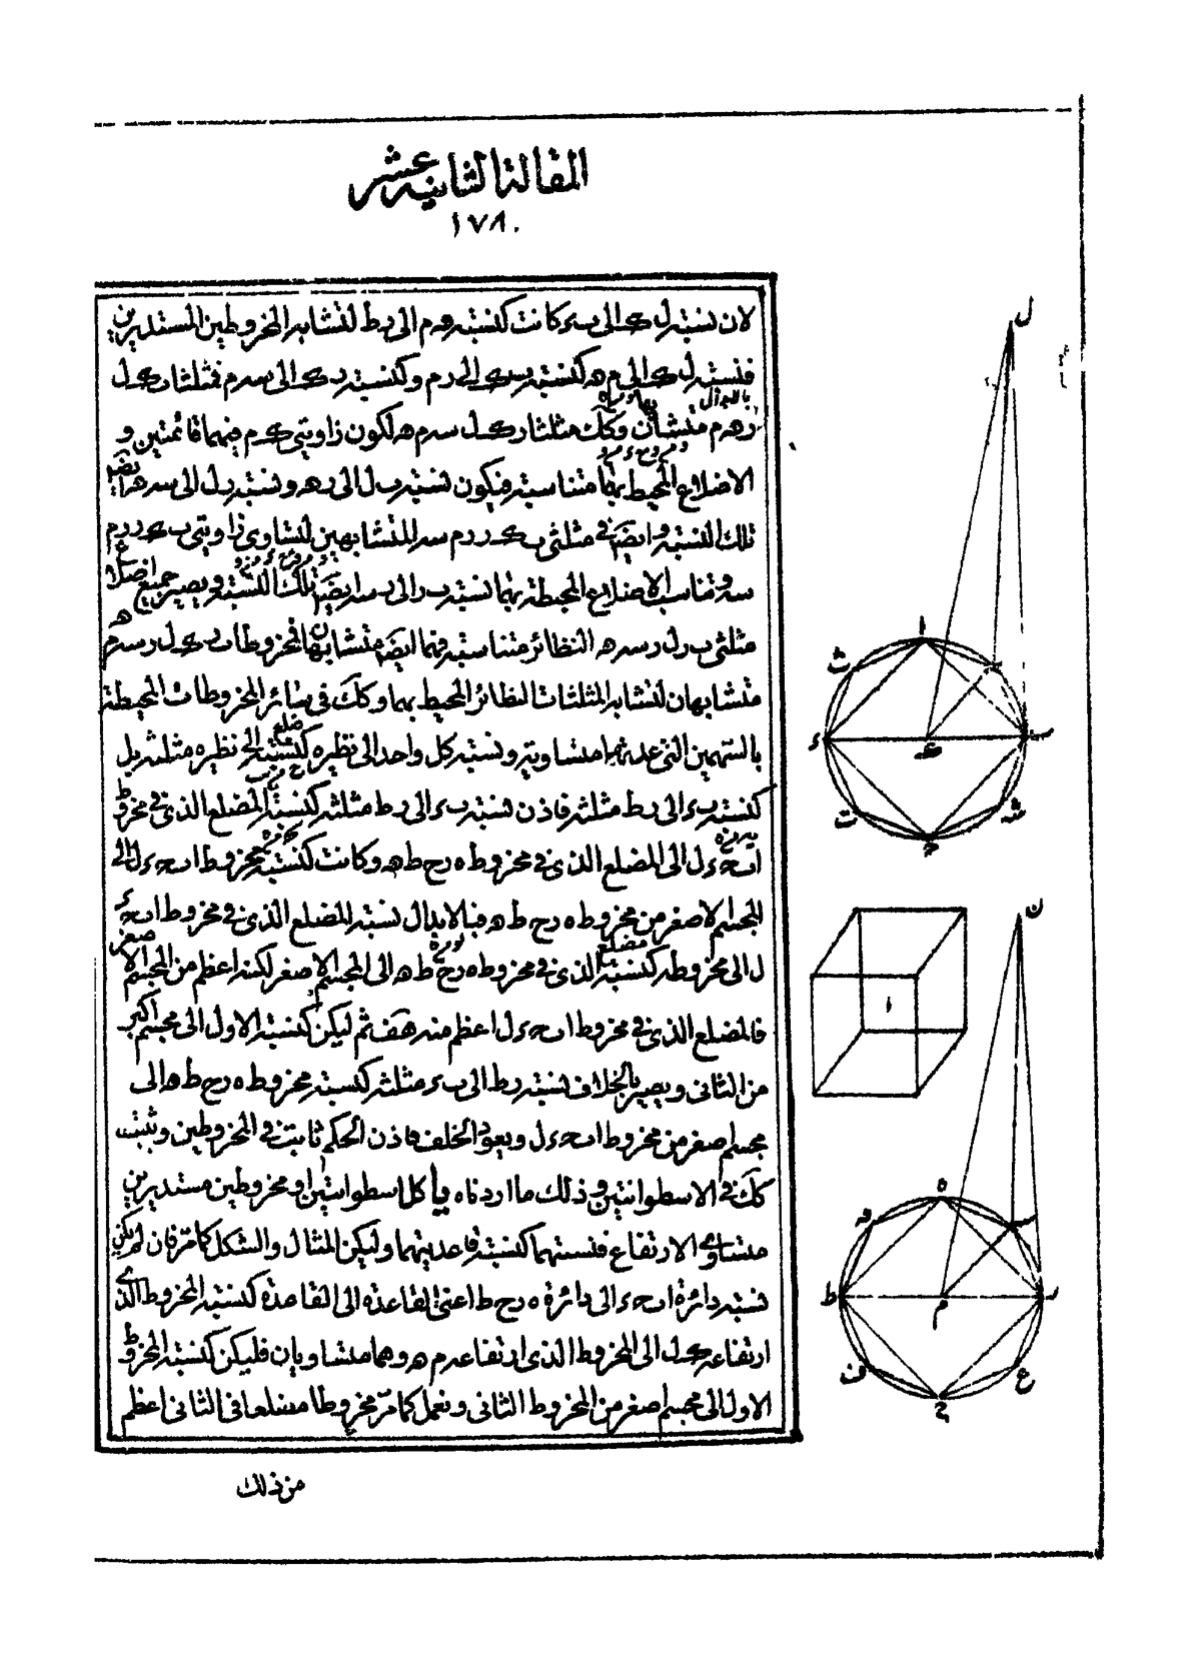 المقالة الثانية عشر
١٧٨٠
لان نسبة ل ک الى ب ء كانت كنسبة ه م الى ر ط لتشابه المخروطين المستديرين
فنسبة ل ک الى م ه كنسبة ب ک الى ر م وكنسبة ر ک الى س م فمثلثا ب ک ل
ر ه م متشابهان وكك مثلثا ر ک ل س م ه لكون زاويتى ک م فيهما قائمتين و
الاضلاع المحيط بهما متناسبة فيكون نسبة ب ل الى ر ه ونسبة ر ل الى س ه ايضا
تلك النسبة وايضا فى مثلثى ب ک ر ر م س المتشابهين لتساوى زاويتى ب ک ر ر م
س وتناسب الاضلاع المحيطة بهما نسبة ب ر الى ر س ايضا تلك النسبة ويصير جميع اضلاع
مثلثى ب ر ل ر س ه النظائر متناسبة فهما ايضا متشابهان فمخروطا ب ک ل ر س م ه
متشابهان لتشابه المثلثات النظائر المحيط بهما وكك فى سائر المخروطات المحيطة
بالسهمين التى عدتهما متساوية ونسبة كل واحد الى نظيره كنسبة ضلع الى نظيره مثلثه بل
كنسبة ب ء الى ر ط مثلثه فاذن نسبة ب ء الى ر ط مثلثه كنسبة المضلع الذى فى مخروط
ا ب ح ء ل الى المضلع الذى فى مخروط ه ر ح ط ه وكانت كنسبة مخروط ا ب ح ء ل الى
المجسم الاصغر من مخروط ه ر ح ط ه فبالابدال نسبة المضلع الذى فى مخروط ا ب ح ء
ل الى مخروطه كنسبة المضلع الذى فى مخروط ه ر ح ط ه الى المجسم الاصغر لكنه اعظم من المجسم الاصغر
فالمضلع الذى فى مخروط ا ب ح ء ل اعظم منه هف ثم ليكن كنسبة الاول الى مجسم اكبر
من الثانى ويصير بالخلاف نسبة ر ط الى ب ء مثلثه كنسبة مخروط ه ر ح ط ه الى
مجسم اصغر من مخروط ا ب ح ء ل ويعود الخلف فاذن الحكم ثابت فى المخروطين وثبت
كك فى الاسطوانتين وذلك ما اردناه يا كل اسطوانتين او مخروطين مستديرين
متساوى الارتفاع فنسبتهما كنسبة قاعدتيهما وليكن المثال والشكل كما مر فان لم يكن
نسبة دائرة ا ب ح ء الى دائرة ه ر ح ط اعنى القاعدة الى القاعدة كنسبة المخروط الذى
ارتفاعه ک ل الى المخروط الذى ارتفاعه م ه وهما متساويان فليكن كنسبة المخروط
الاول الى مجسم اصغر من المخروط الثانى ونعمل كما مر مخروطا مضلعا فى الثانى اعظم
من ذلك
ل
ا
ث
ء
ک
ب
ت
ش
ح
ن
ا
ه
ط
م
ر
ف
ع
ح